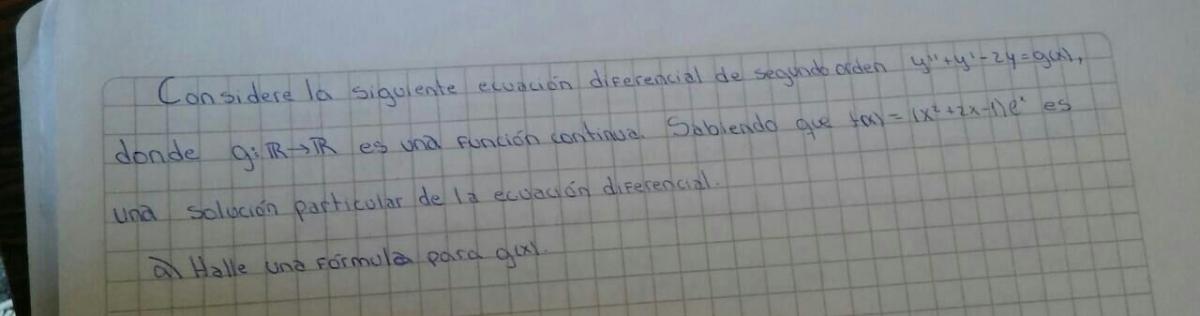 Considere la siguiente ecuación diferencial de segundo orden y''+y'-2y=g(x),
donde g:ℝ→ℝ es una función continua. Sabiendo que f(x)=(x²+2x-1)eˣ es
una solución particular de la ecuación diferencial.
a) Halle una fórmula para g(x).